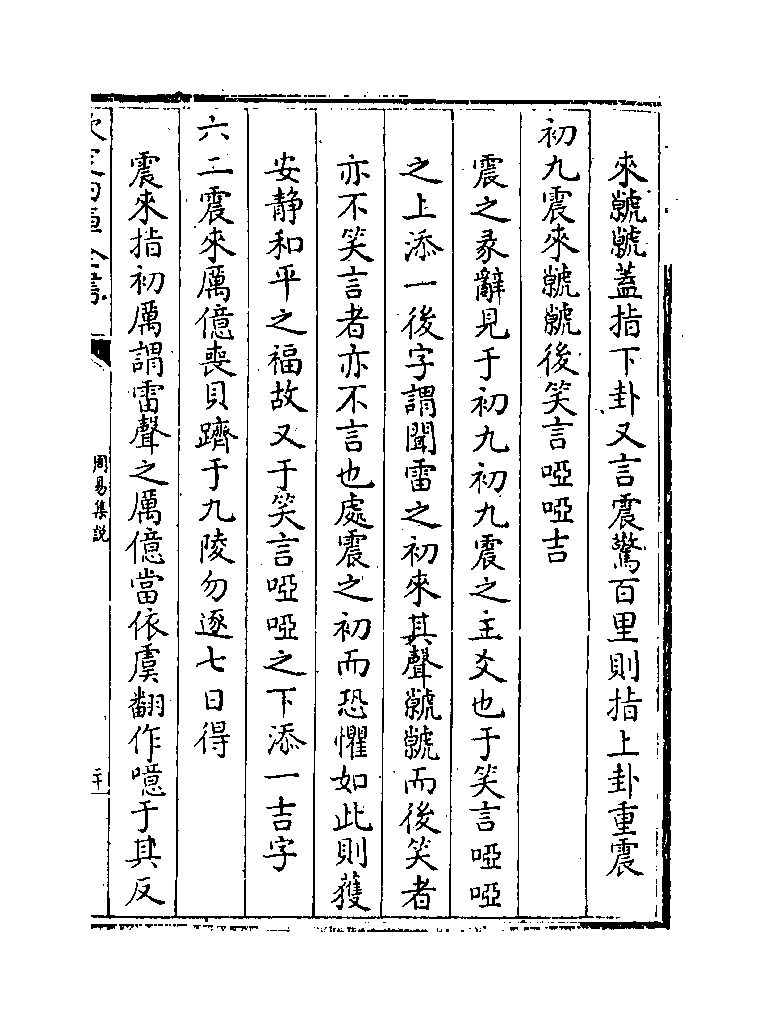 來虩虩蓋指下卦又言震驚百里則指上卦重震
初九震來虩虩後笑言啞啞吉
震之彖辭見于初九初九震之主爻也于笑言啞啞
之上添一後字謂聞雷之初來其聲虩虩而後笑者
亦不笑言者亦不言也處震之初而恐懼如此則獲
安静和平之福故又于笑言啞啞之下添一吉字
六二震來厲億喪貝躋于九陵勿逐七日得
震來指初厲謂雷聲之厲億當依虞翻作噫于其反
欽定四庫全書
周易集説
二十